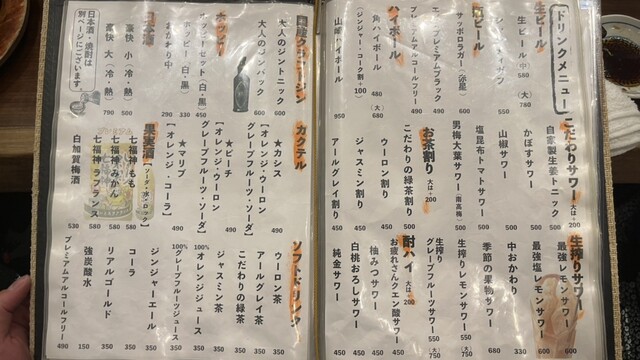 ドリンクメニュー
生ビール
生ビール 中 580 (大) 780
瓶ビール
サッポロラガー(赤星) 600
エーデルピルス
プレミアムブラック
プレミアムアルコールフリー 490
ハイボール
角ハイボール 480 (大) 680
(ジンジャー・コーク割+100)
山崎ハイボール 950
こだわりサワー 大は+200
自家製生姜トニック 500
かぼすサワー 500
山椒サワー 500
塩昆布トマトサワー 500
男梅大葉サワー(南高梅) 500
お茶割り 大は+200
こだわりの緑茶割り 500
ウーロン割り 450
ジャスミン割り 450
アールグレイ割り 450
生搾りサワー
最強レモンサワー 600
最強塩レモンサワー 600
中おかわり 330
季節の果物サワー 680
生搾りレモンサワー 550 (大) 750
生搾りグレープフルーツサワー 550 (大) 750
酎ハイ 大は+200
お疲れさんクエン酸サワー 450
柚みつサワー 450
白桃おろしサワー 450
純金サワー 450
国産クラフトジン
大人のジントニック 600
大人のジンバック 600
ホッピー
ホッピーセット(白・黒) 450
ホッピー(白・黒) 330
おかわり中 290
日本酒
豪快 小(冷・熱) 500
豪快 大(冷・熱) 790
日本酒・焼酎は
別ページにございます。
カクテル
★カシス
[オレンジ・ウーロン
グレープフルーツ・ソーダ] 490
★ピーチ
[オレンジ・ウーロン
グレープフルーツ・ソーダ] 490
★マリブ
[オレンジ・コーラ] 490
果実酒[ソーダ・水・ロック]
七福神 もも 580
七福神 みかん 580
七福神 ラフランス 580
白加賀梅酒 530
ソフトドリンク
ウーロン茶 350
アールグレイ茶 350
こだわりの緑茶 350
ジャスミン茶 350
100%オレンジジュース 350
100%グレープフルーツジュース 350
ジンジャーエール 350
コーラ 350
リアルゴールド 350
強炭酸水 150
プレミアムアルコールフリー 490